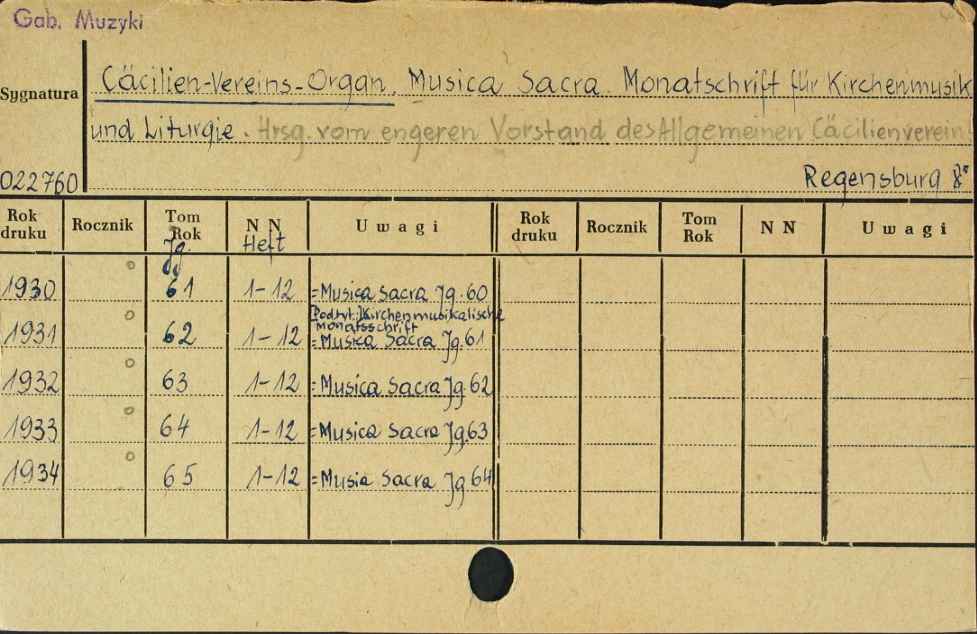 Gab. Muzyki
Sygnatura
Cäcilien-Vereins-Organ. Musica Sacra. Monatschrift für Kirchenmusik
und Liturgie. Hrsg. vom engeren Vorstand des Allgemeinen Cäcilienverein
022760 Regensburg 8°
Rok druku Rocznik Tom Rok Jg. N N Heft Uwagi Rok druku Rocznik Tom Rok N N Uwagi
1930 61 1-12 =Musica Sacra Jg. 60
[Podtyt.:] Kirchenmusikalische
Monatsschrift
1931 62 1-12 =Musica Sacra Jg. 61
1932 63 1-12 =Musica Sacra Jg. 62
1933 64 1-12 =Musica Sacra Jg. 63
1934 65 1-12 =Musia Sacra Jg 64